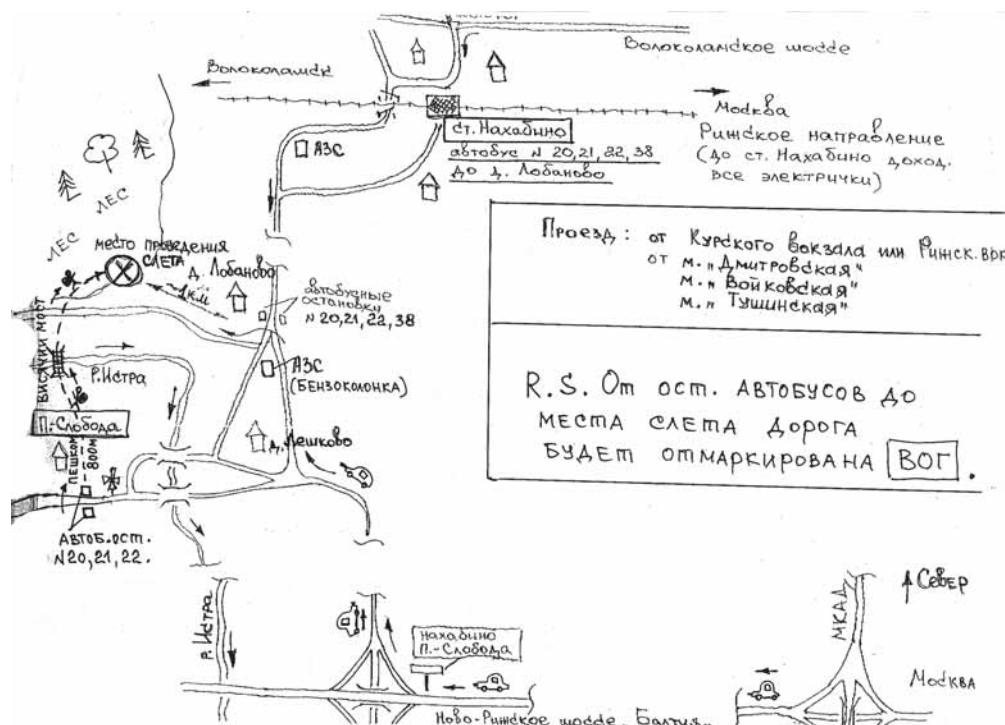 Волоколамское шоссе
Волоколамск
Москва
Рижское направление
(до ст. Нахабино доход.
все электрички)
ст. Нахабино
автобус N 20,21,22,38
до д. Лобаново
АЗС
ЛЕС
ЛЕС
МЕСТО ПРОВЕДЕНИЯ
СЛЕТА
д. Лобаново
~1км
автобусные
остановки
N 20,21,22,38
АЗС
(БЕНЗОКОЛОНКА)
ВИСЯЧИЙ МОСТ
Р. Истра
П.-Слобода
ПЕШКОМ
800м
д. Лешково
АВТОБ. ОСТ.
N20,21,22.
Проезд: от Курского вокзала или Рижск. вок
от м. "Дмитровская"
м. "Войковская"
м. "Тушинская"
R.S. От ост. АВТОБУСОВ ДО
МЕСТА СЛЕТА ДОРОГА
БУДЕТ ОТМАРКИРОВАНА ВОГ.
р. Истра
Нахабино
П.-Слобода
Ново-Рижское шоссе "Балтия"
МКАД
Север
Москва